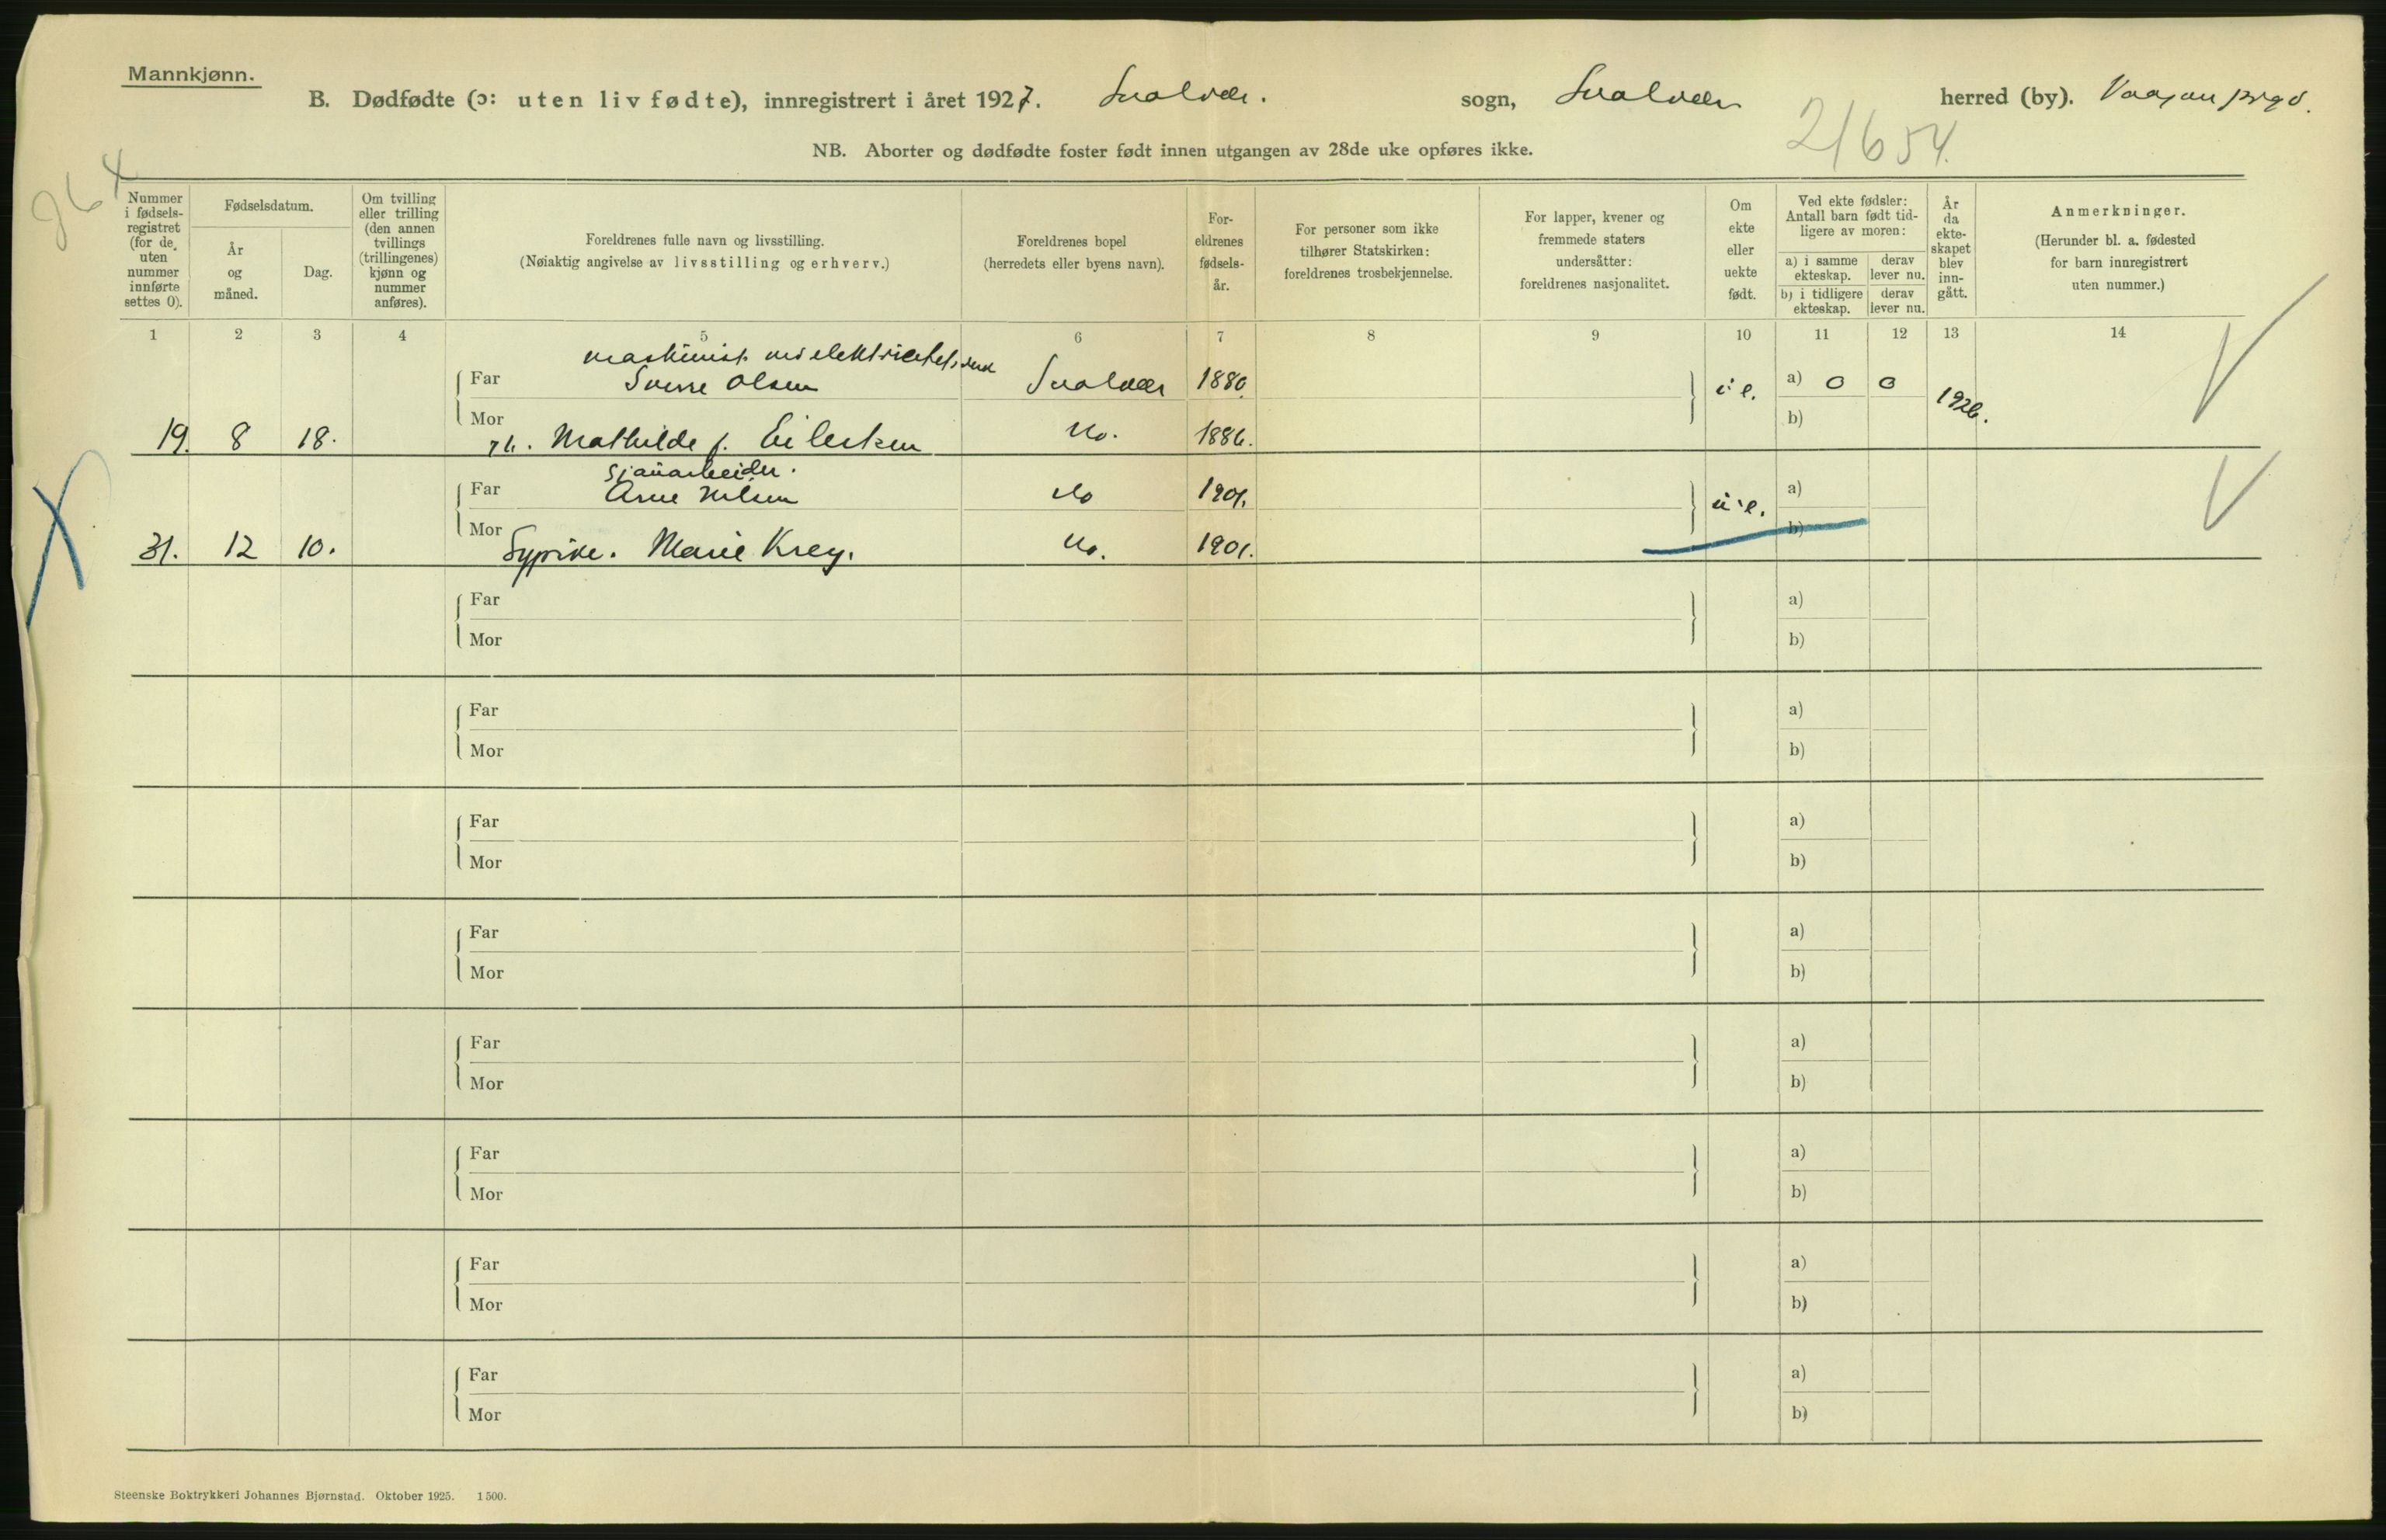 Mannkjønn.
B. Dødfødte (ɔ: uten liv fødte), innregistrert i året 1927. Svolvær. sogn, Svolvær herred (by). Vaagan prgd.
NB. Aborter og dødfødte foster født innen utgangen av 28de uke opføres ikke.
21654.
264
Nummer i fødsels-registret (for de uten nummer innførte settes 0).
Fødselsdatum.
År og måned.
Dag.
Om tvilling eller trilling (den annen tvillings (trillingenes) kjønn og nummer anføres).
Foreldrenes fulle navn og livsstilling.
(Nøiaktig angivelse av livsstilling og erhverv.)
Foreldrenes bopel
(herredets eller byens navn).
For-eldrenes fødsels-år.
For personer som ikke tilhører Statskirken: foreldrenes trosbekjennelse.
For lapper, kvener og fremmede staters undersåtter: foreldrenes nasjonalitet.
Om ekte eller uekte født.
Ved ekte fødsler: Antall barn født tid-ligere av moren:
a) i samme ekteskap.
derav lever nu.
b) i tidligere ekteskap.
derav lever nu.
År da ekte-skapet blev inn-gått.
Anmerkninger.
(Herunder bl. a. fødested for barn innregistrert uten nummer.)
1 2 3 4 5 6 7 8 9 10 11 12 13 14
maskinist ved elektricitetsverk
Far Sverre Olsen Svolvær 1880. a) 0 0
e. 1926.
Mor b)
19. 8 18. Mathilde f. Eilertsen do. 1886.
Sjauarbeider.
Far Arne Nilsen do 1901. a)
u.e.
Mor b)
31. 12 10. Sypike. Marie Krey. do. 1901.
Far a)
Mor b)
Far a)
Mor b)
Far a)
Mor b)
Far a)
Mor b)
Far a)
Mor b)
Far a)
Mor b)
Far a)
Mor b)
Far a)
Mor b)
Steenske Boktrykkeri Johannes Bjørnstad. Oktober 1925. 1500.